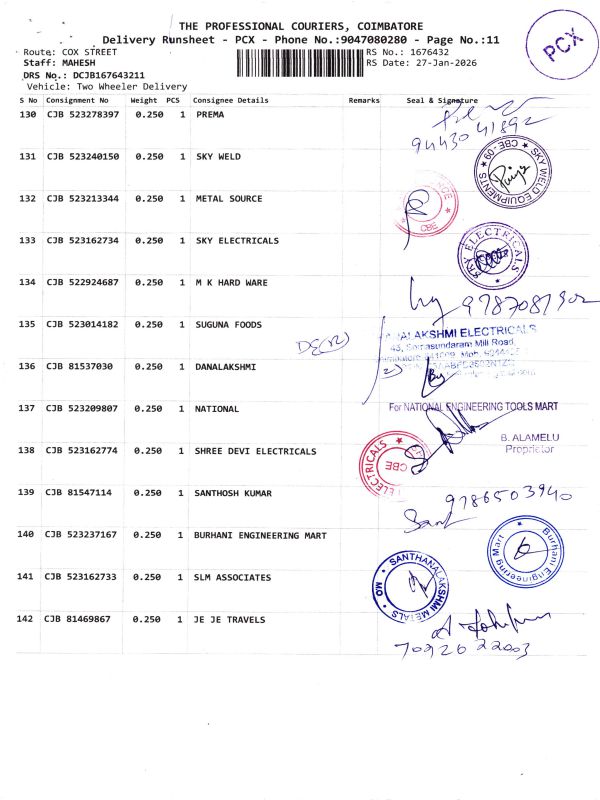 THE PROFESSIONAL COURIERS, COIMBATORE
Delivery Runsheet - PCX - Phone No.:9047080280 - Page No.:11
PCX
Route: COX STREET
RS No.: 1676432
Staff: MAHESH
RS Date: 27-Jan-2026
DRS No.: DCJB167643211
Vehicle: Two Wheeler Delivery
S No Consignment No Weight PCS Consignee Details Remarks Seal & Signature
130 CJB 523278397 0.250 1 PREMA
9443041892
131 CJB 523240150 0.250 1 SKY WELD
SKY WELD EQUIPMENTS CBE-09
132 CJB 523213344 0.250 1 METAL SOURCE
CBE
133 CJB 523162734 0.250 1 SKY ELECTRICALS
SKY ELECTRICALS
134 CJB 522924687 0.250 1 M K HARD WARE
135 CJB 523014182 0.250 1 SUGUNA FOODS
JALAKSHMI ELECTRICALS
Mill Road,
136 CJB 81537030 0.250 1 DANALAKSHMI
137 CJB 523209807 0.250 1 NATIONAL
For NATIONAL ENGINEERING TOOLS MART
B. ALAMELU
Proprietor
138 CJB 523162774 0.250 1 SHREE DEVI ELECTRICALS
ELECTRICALS
CBE
139 CJB 81547114 0.250 1 SANTHOSH KUMAR
9786503940
140 CJB 523237167 0.250 1 BURHANI ENGINEERING MART
Burhani Engineering Mart
141 CJB 523162733 0.250 1 SLM ASSOCIATES
SANTHANALAKSHMI METALS
142 CJB 81469867 0.250 1 JE JE TRAVELS